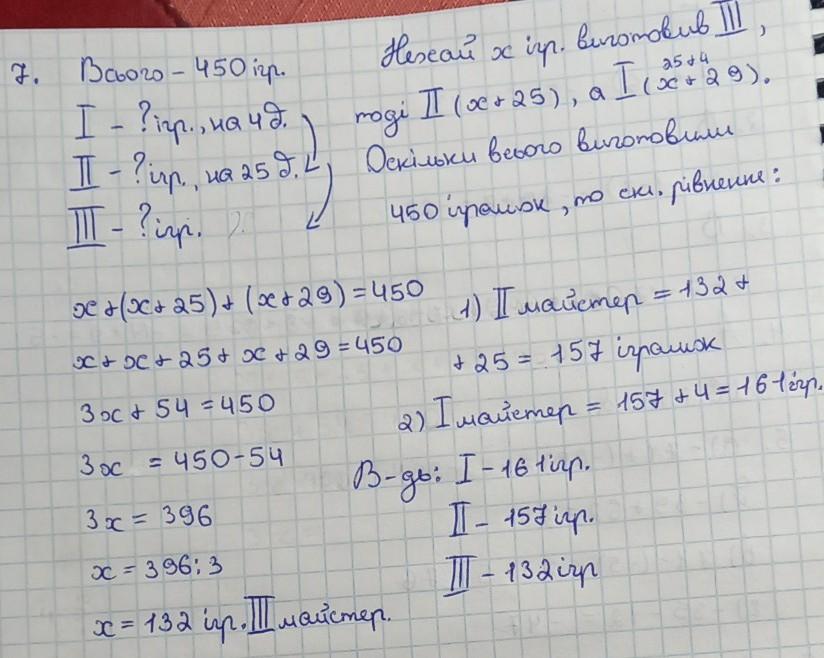 7. Всього - 450 ігр.
I - ? ігр., на 4 д.
II - ? ігр., на 25 д.
III - ? ігр.
Нехай x ігр. виготовив III,
тоді II (x + 25), а I (x + 29).
25+4
Оскільки всього виготовили
450 іграшок, то скл. рівнення:
x + (x + 25) + (x + 29) = 450
x + x + 25 + x + 29 = 450
3x + 54 = 450
3x = 450 - 54
3x = 396
x = 396 : 3
x = 132 ігр. III майстер.
1) II майстер = 132 +
+ 25 = 157 іграшок
2) I майстер = 157 + 4 = 161 ігр.
В-дь: I - 161 ігр.
II - 157 ігр.
III - 132 ігр